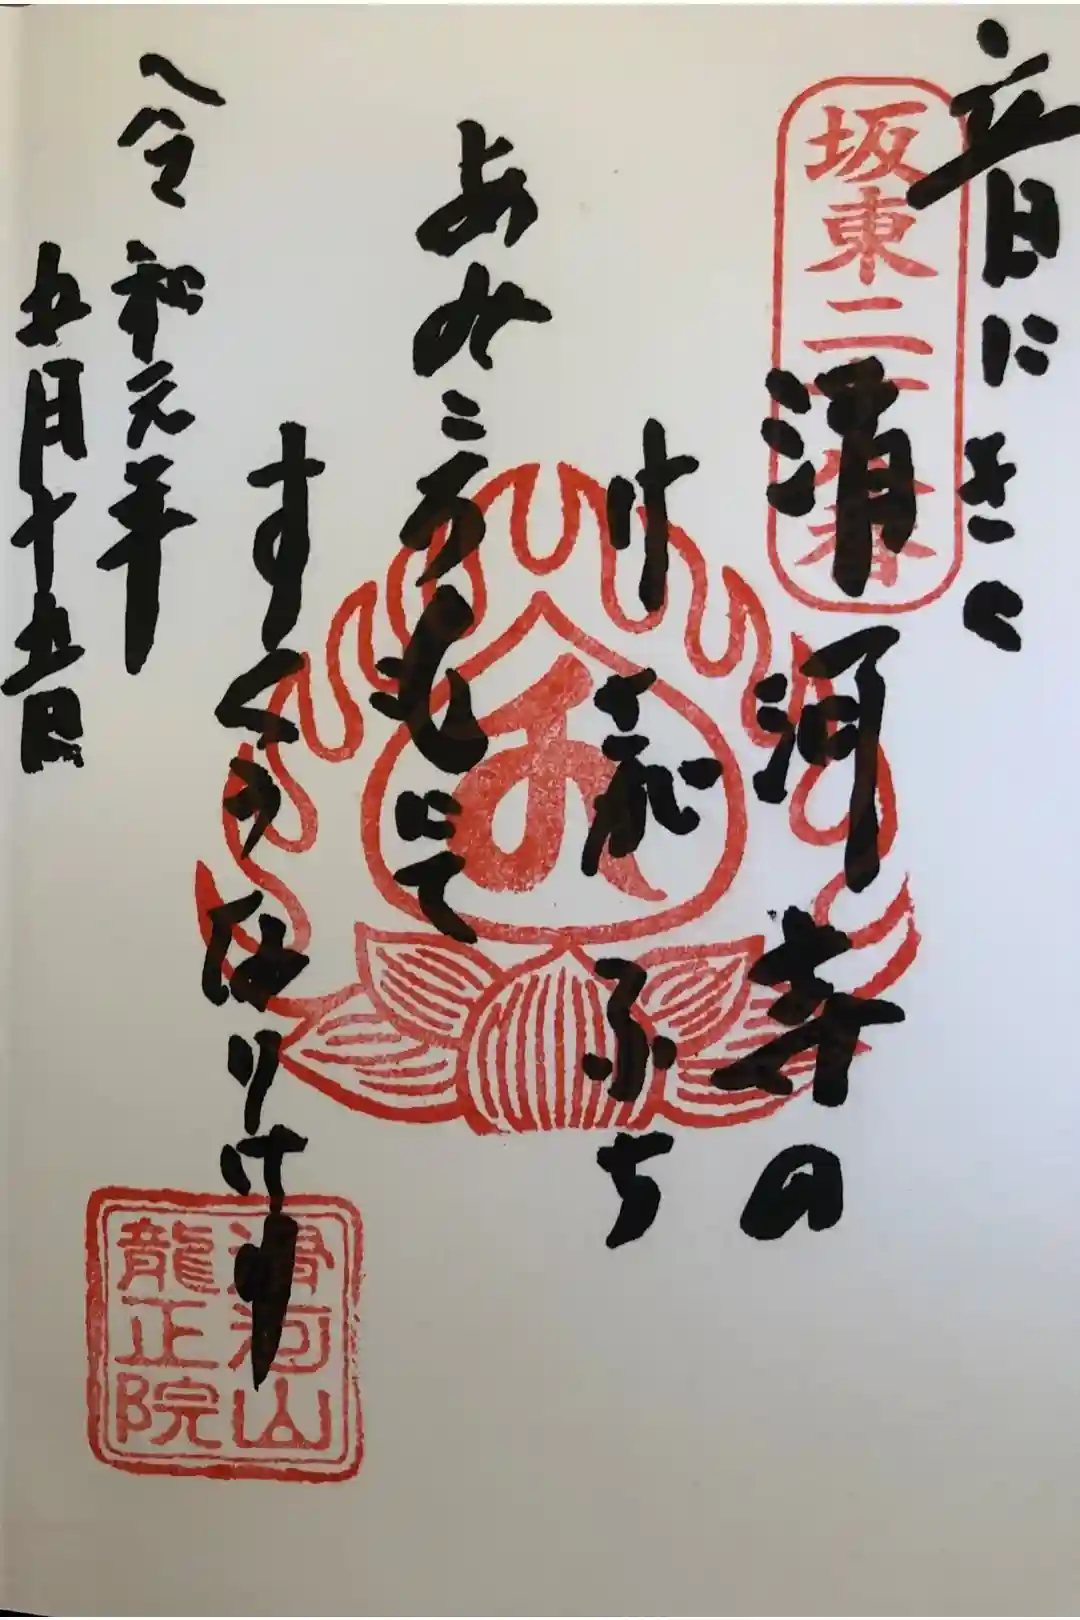 坂東二十八番
音にきく
滑河寺の
あみころもにて
すくう なりけり
令和元年
五月十五日
滑河山
龍正院